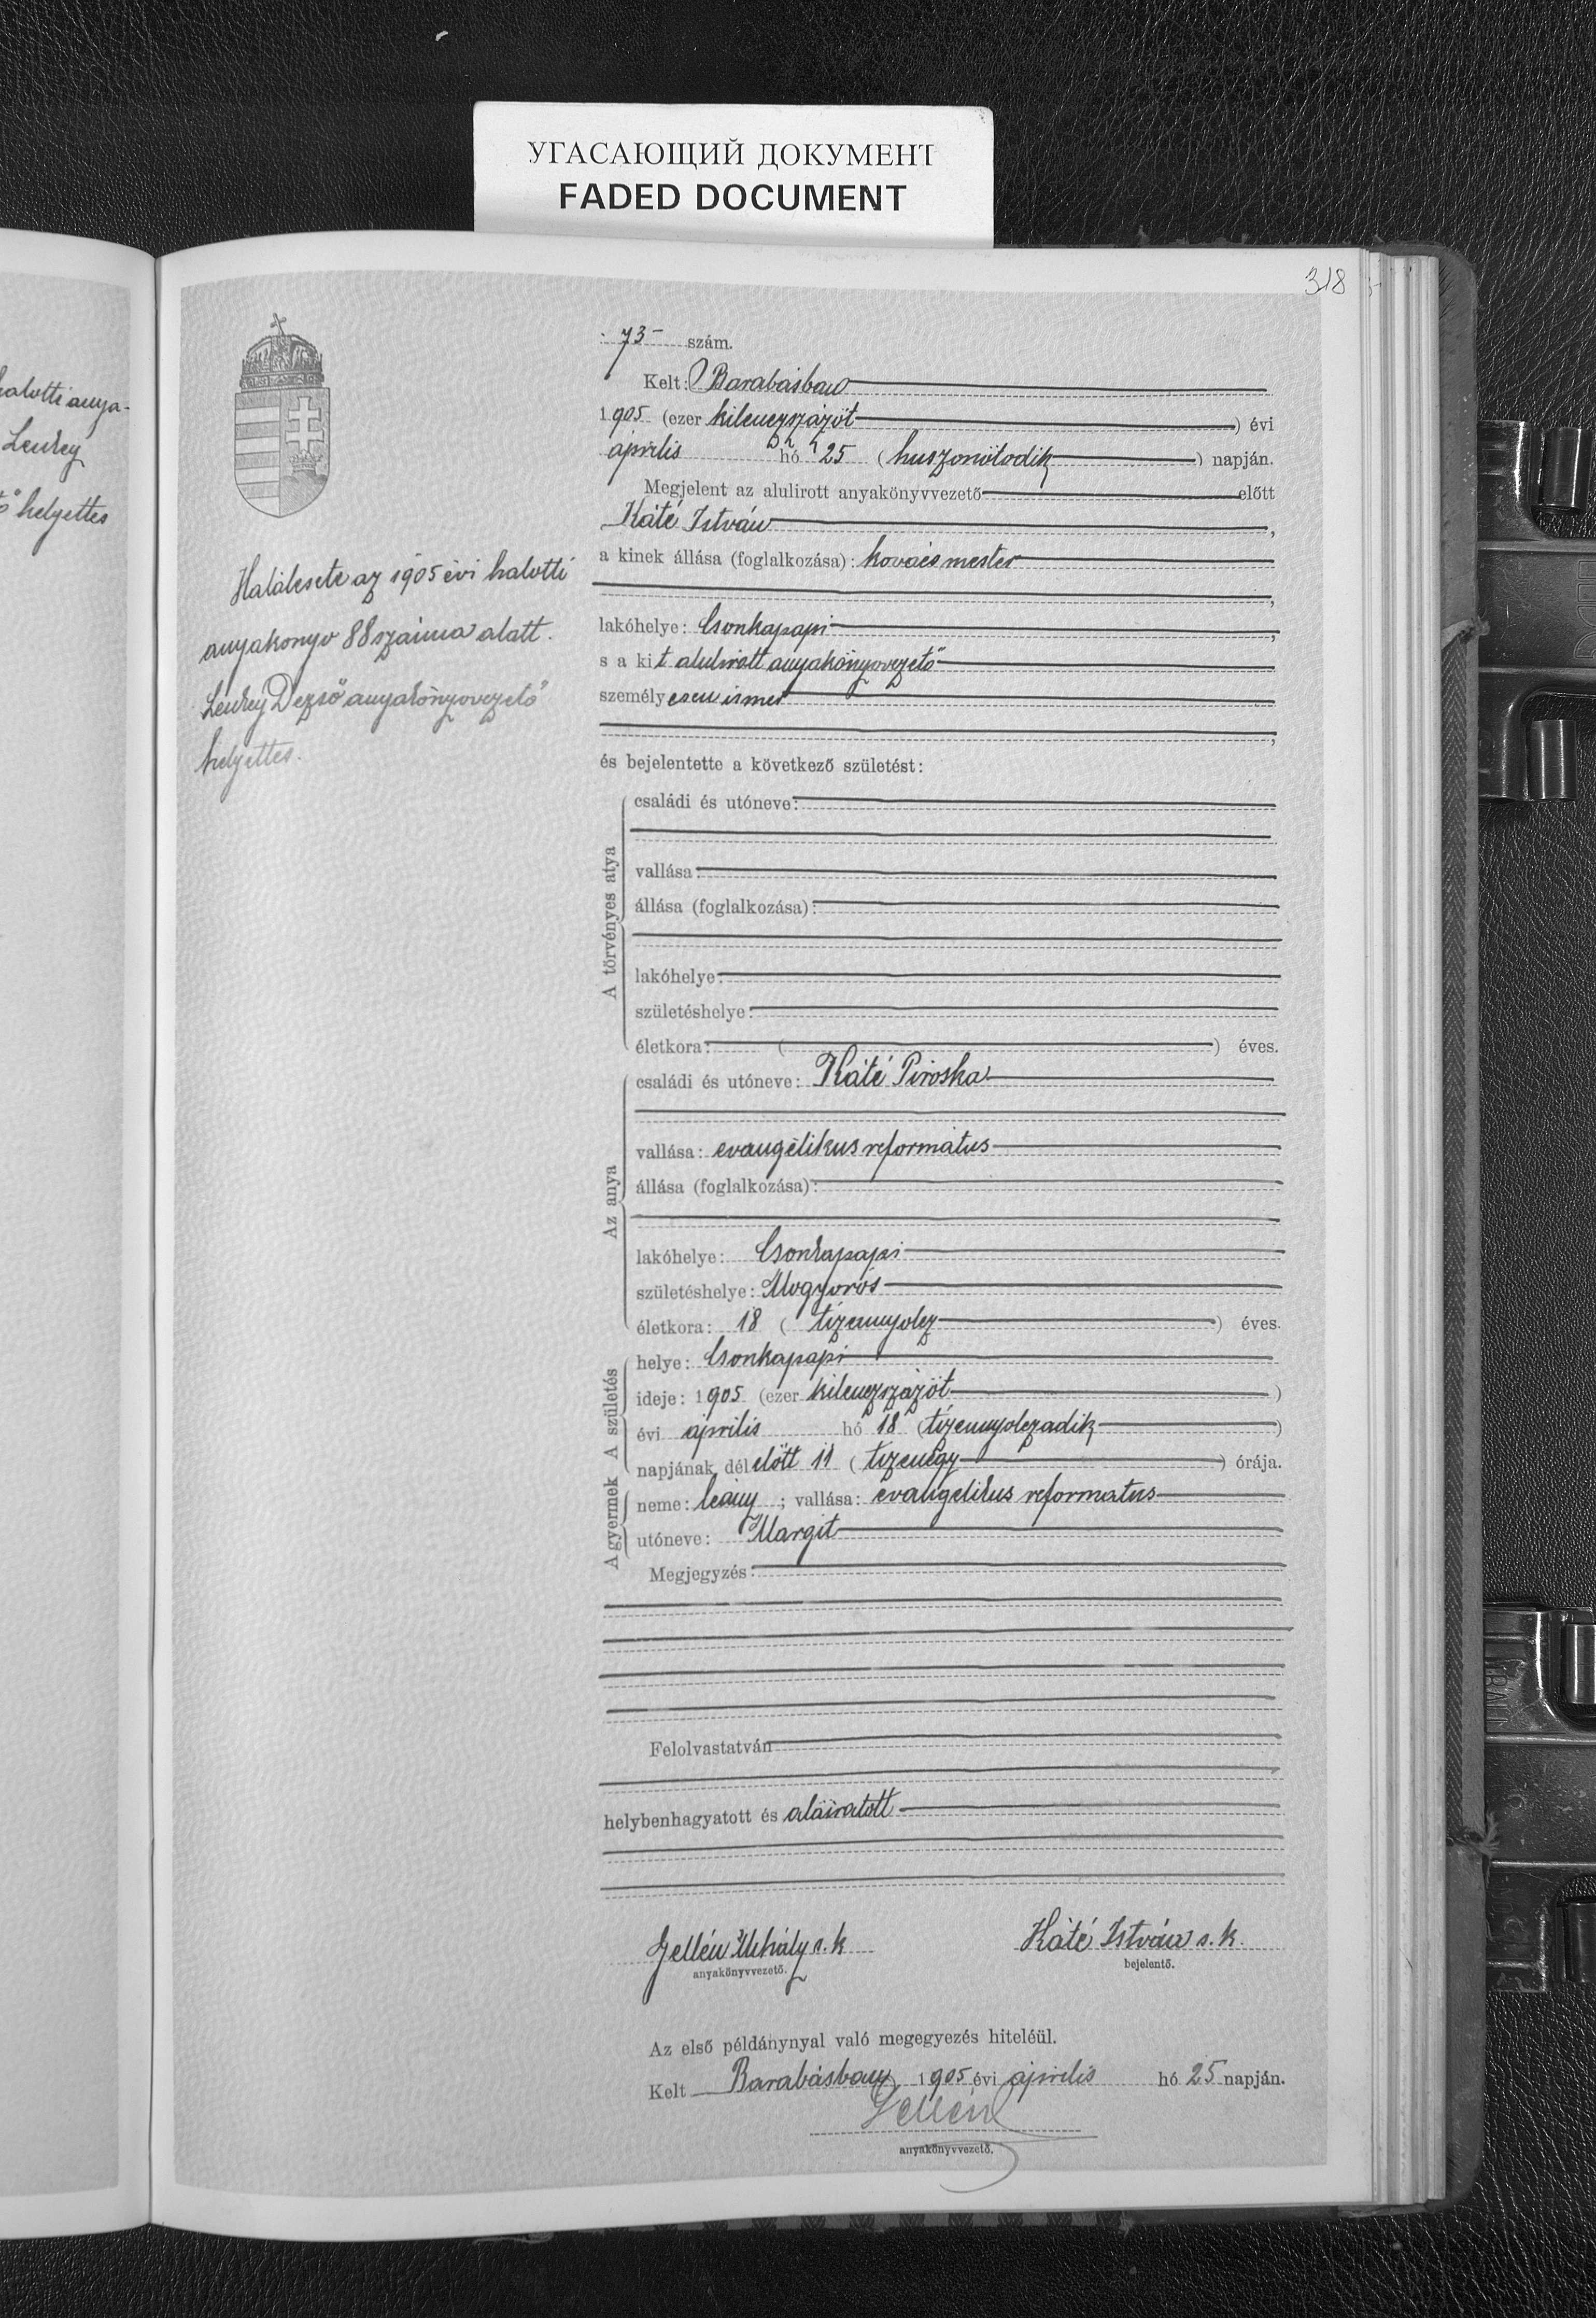 УГАСАЮЩИЙ ДОКУМЕНТ
FADED DOCUMENT
318
halotti anya-
Lenkey
ő helyettes
Halálesete az 1905 évi halotti
anyakönyv 88 száma alatt.
Lenkey Dezső anyakönyvvezető
helyettes.
73 szám.
Kelt: Barabásban
1905 (ezer kilenczszázöt) évi
április hó 25 (huszonötödik) napján.
Megjelent az alulirott anyakönyvvezető előtt
Káté István,
a kinek állása (foglalkozása): kovács mester
,
lakóhelye: Csonkapapi,
s a kit alulirott anyakönyvvezető
személyesen ismer
,
és bejelentette a következő születést:
A törvényes atya
családi és utóneve:
vallása:
állása (foglalkozása):
lakóhelye:
születéshelye:
életkora: ( ) éves.
Az anya
családi és utóneve: Káté Piroska
vallása: evangélikus református
állása (foglalkozása):
lakóhelye: Csonkapapi
születéshelye: Mogyorós
életkora: 18 (tizennyolcz) éves.
A születés
helye: Csonkapapi
ideje: 1905 (ezer kilenczszázöt)
évi április hó 18 (tizennyolczadik)
napjának délelőtt 11 (tizenegy) órája.
A gyermek
neme: leány; vallása: evangelikus református
utóneve: Margit
Megjegyzés:
Felolvastatván
helybenhagyatott és aláiratott
Gellén Mihály s. k
anyakönyvvezető.
Káté István s. k.
bejelentő.
Az első példánynyal való megegyezés hiteléül.
Kelt Barabásban, 1905 évi április hó 25 napján.
Gellén
anyakönyvvezető.